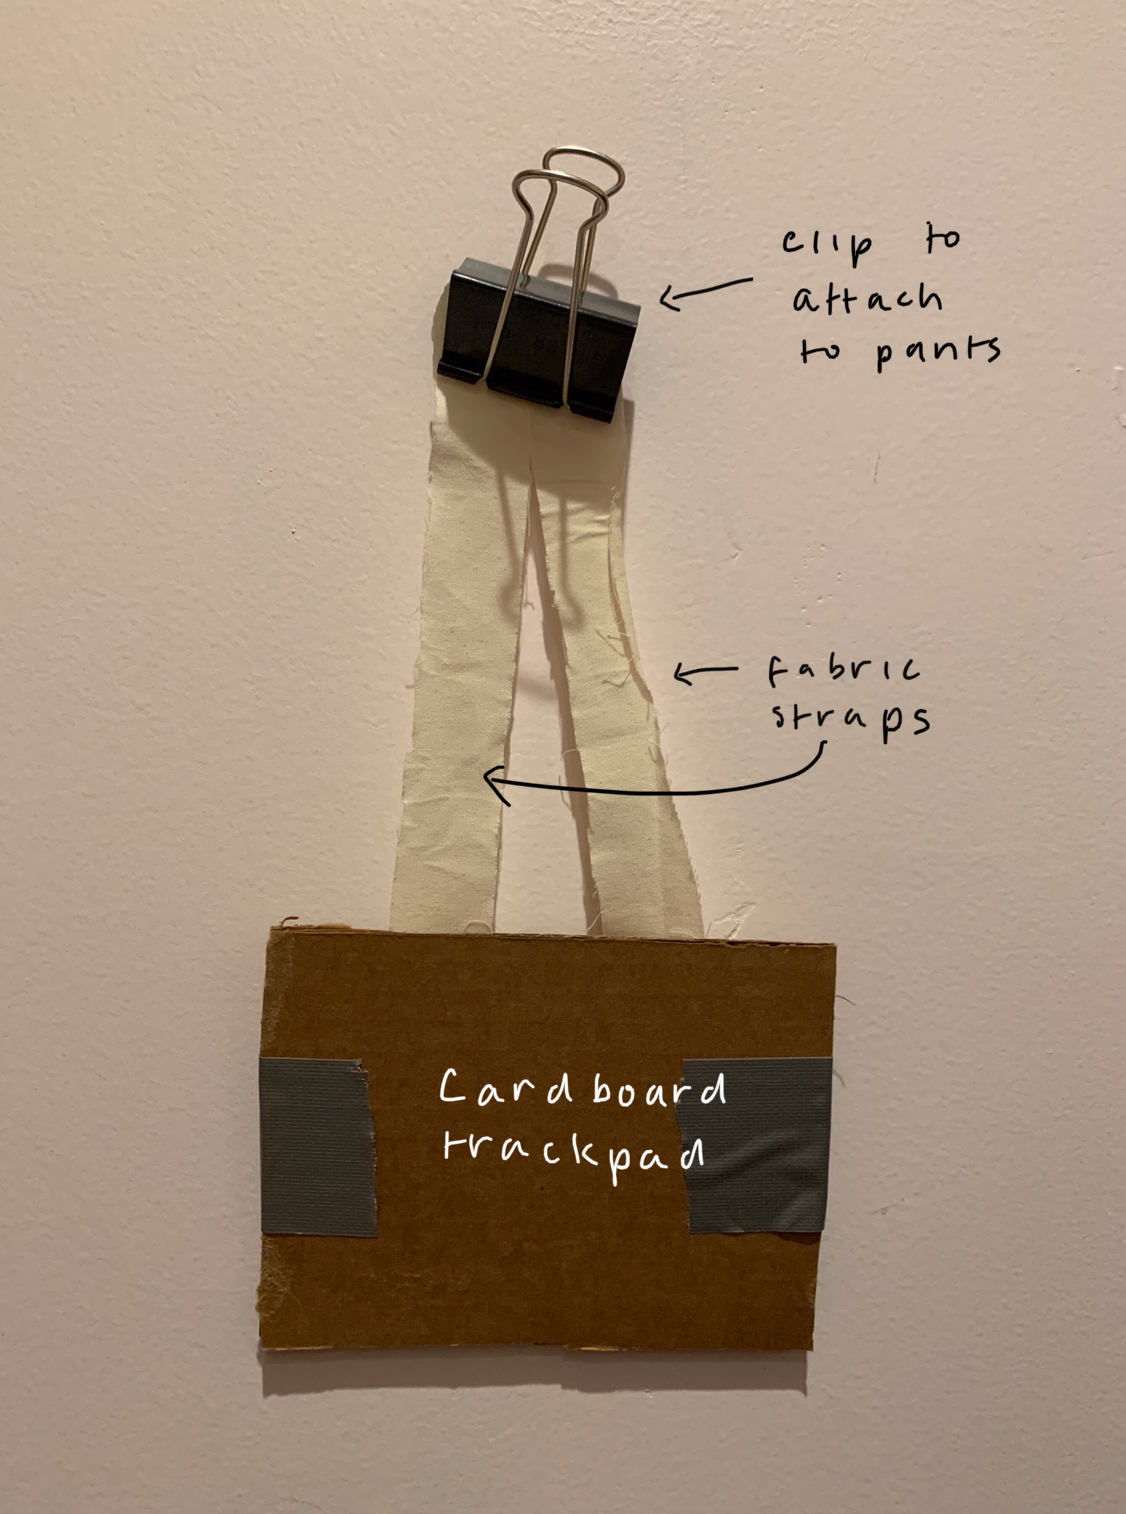 clip to
attach
to pants
fabric
straps
Cardboard
trackpad